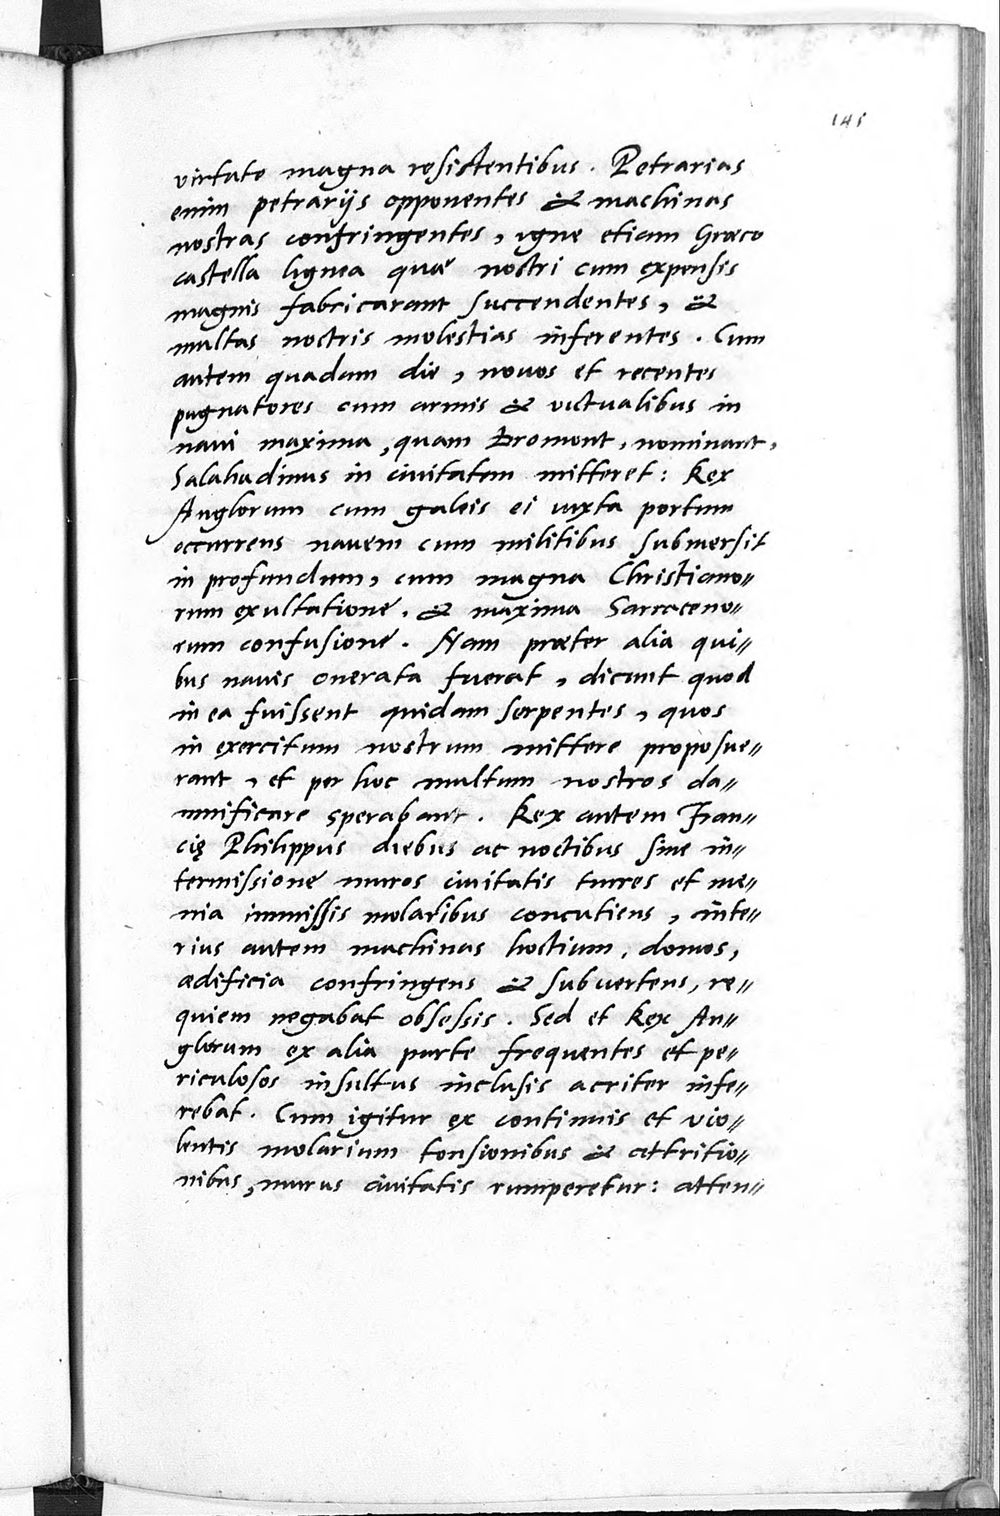 141
virtute magna resistentibus. Petrarias
enim petrarijs opponentes & machinas
nostras confringentes, igne etiam Græco
castella lignea quæ nostri cum expensis
magnis fabricarant succendentes, &
multas nostris molestias inferentes. Cum
autem quadam die, novos et recentes
pugnatores cum armis & victualibus in
navi maxima, quam Dromont, nominant,
Salahadinus in civitatem mitteret: Rex
Anglorum cum galeis ei iuxta portum
occurrens navem cum militibus submersit
in profundum, cum magna Christiano〃
rum exultatione, & maxima Sarraceno〃
rum confusione. Nam præter alia qui〃
bus navis onerata fuerat, dicunt quod
in ea fuissent quidam serpentes, quos
in exercitum nostrum mittere proposue〃
rant, et per hoc multum nostros da〃
mnificare sperabant. Rex autem Fran〃
cię Philippus diebus ac noctibus sine in〃
termissione muros civitatis turres et me〃
nia immissis molaribus concutiens, inte〃
rius autem machinas hostium, domos,
ædificia confringens & subvertens, re〃
quiem negabat obsessis. Sed et Rex An〃
glorum ex alia parte frequentes et pe〃
riculosos insultus inclusis acriter infe〃
rebat. Cum igitur ex continuis et vio〃
lentis molarium tonsionibus & attritio〃
nibus, murus civitatis rumperetur: atten〃